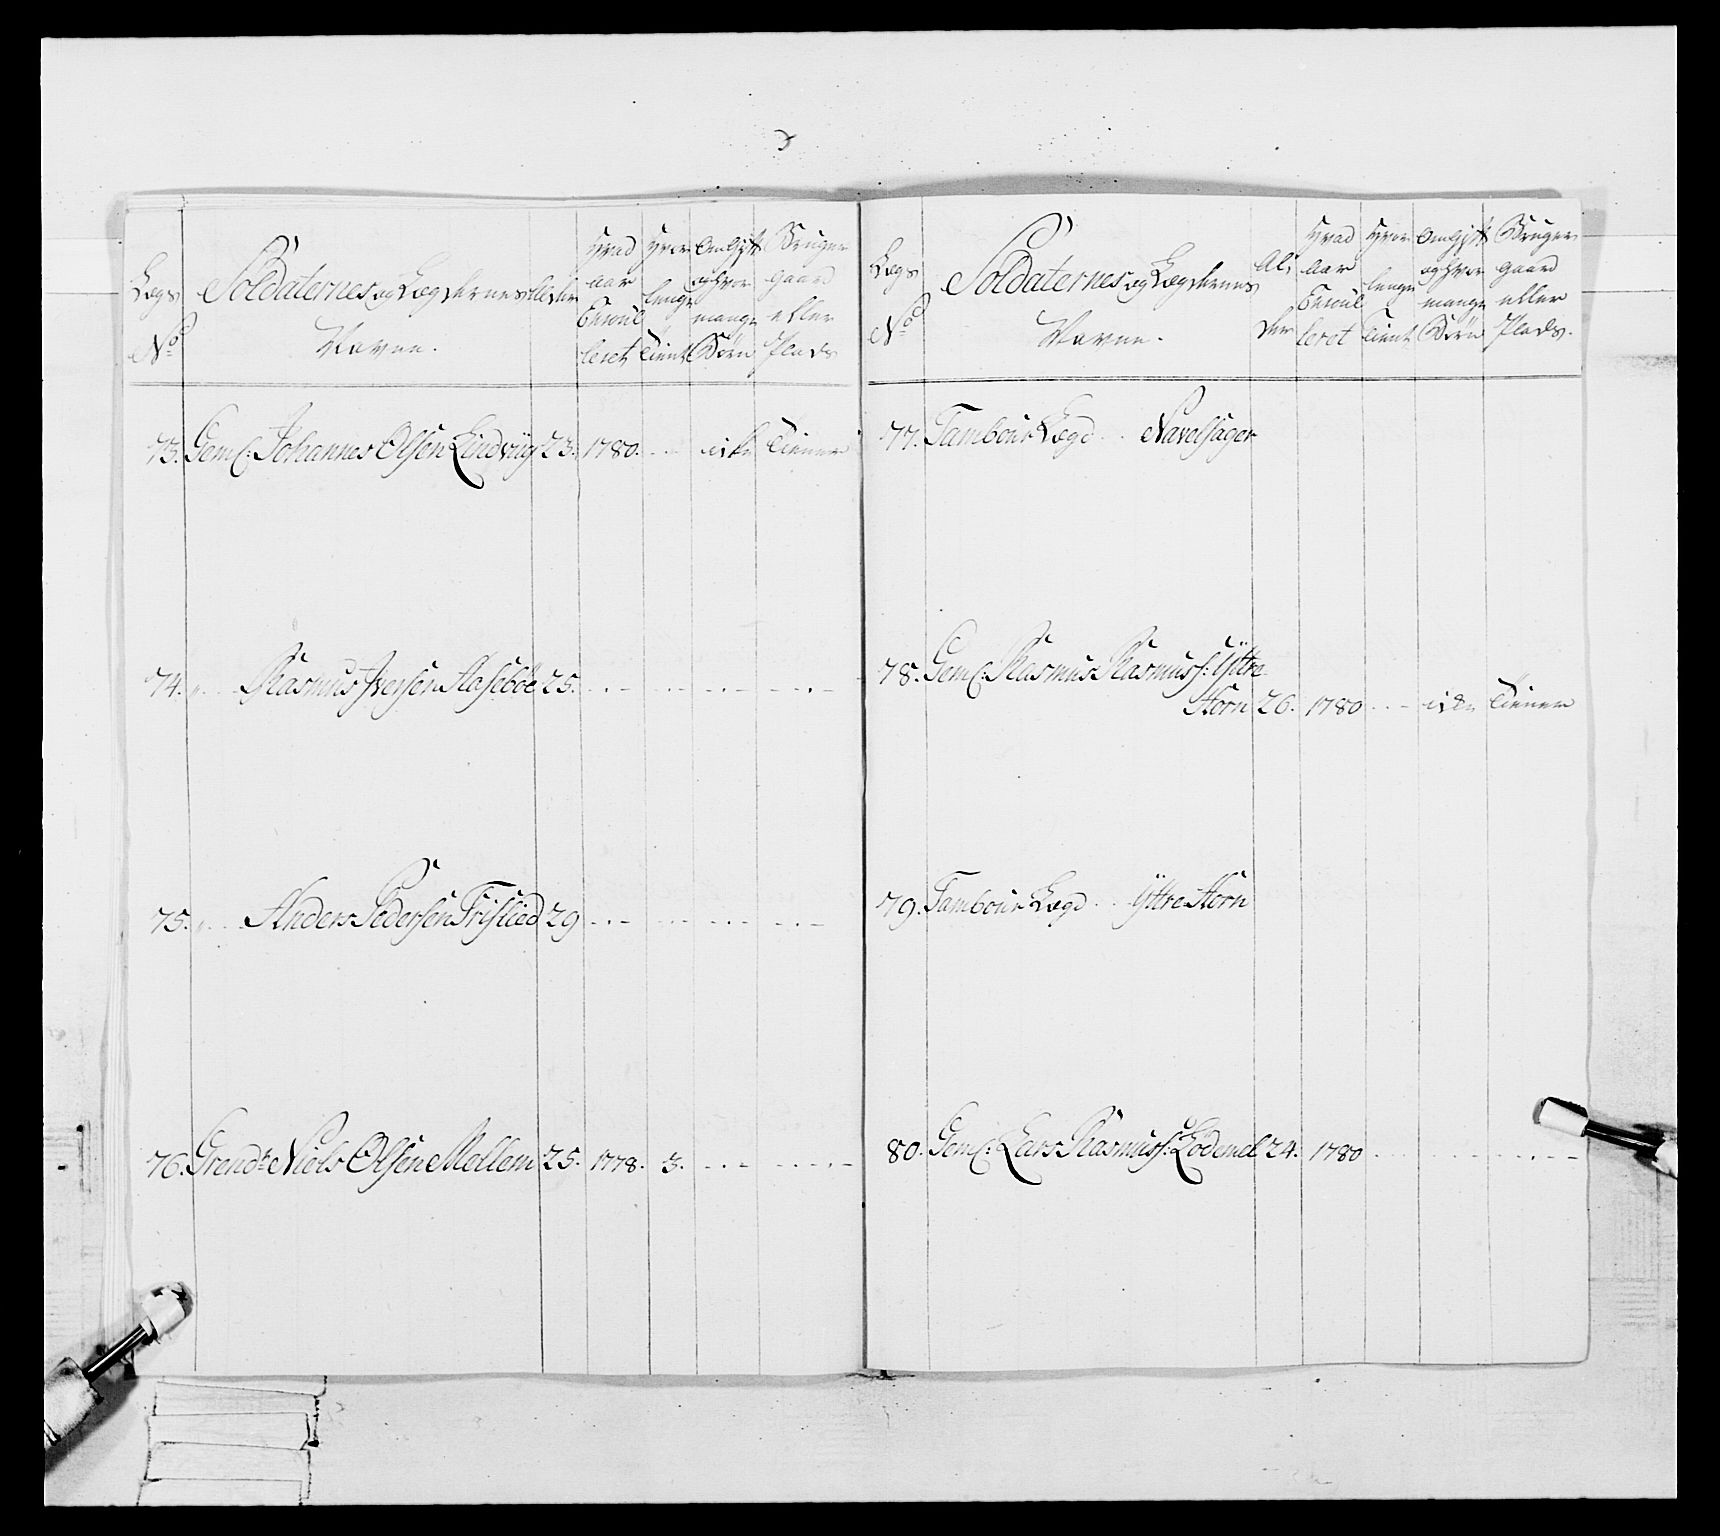 Lægs No
Soldaternes og Lægdernes Navne.
Alder
Hvad aar Enroulleret
Hvor lenge Tient
Om Gift og hvor mange Börn
Bruger gaard eller Plads
73. Gem: Johannes Olsen Lindviig 23. 1780. - - - icke Tiener
74. " - - Rasmus Iversen Aaseböe 25. - - - - - - - -
75. " - - Anders Pedersen Frislied 29 - - - - - - - -
76. Grend: Niels Olsen Mellem 25. 1778. 3. - - - - - -
Lægs No
Soldaternes og Lægdernes Navne.
Alder
Hvad aar Enroulleret
Hvor lenge Tient
Om Gift og hvor mange Börn
Bruger gaard eller Plads.
77. Tambour Lægd - - Navelsager
78. Gem: Rasmus Rasmuss: Yttre
Horn 26. 1780 - - - icke Tiener
79. Tambour Lægd - - Yttre Horn
80. Gem: Lars Rasmuss: Lödemel 24. 1780 - - - - - - -